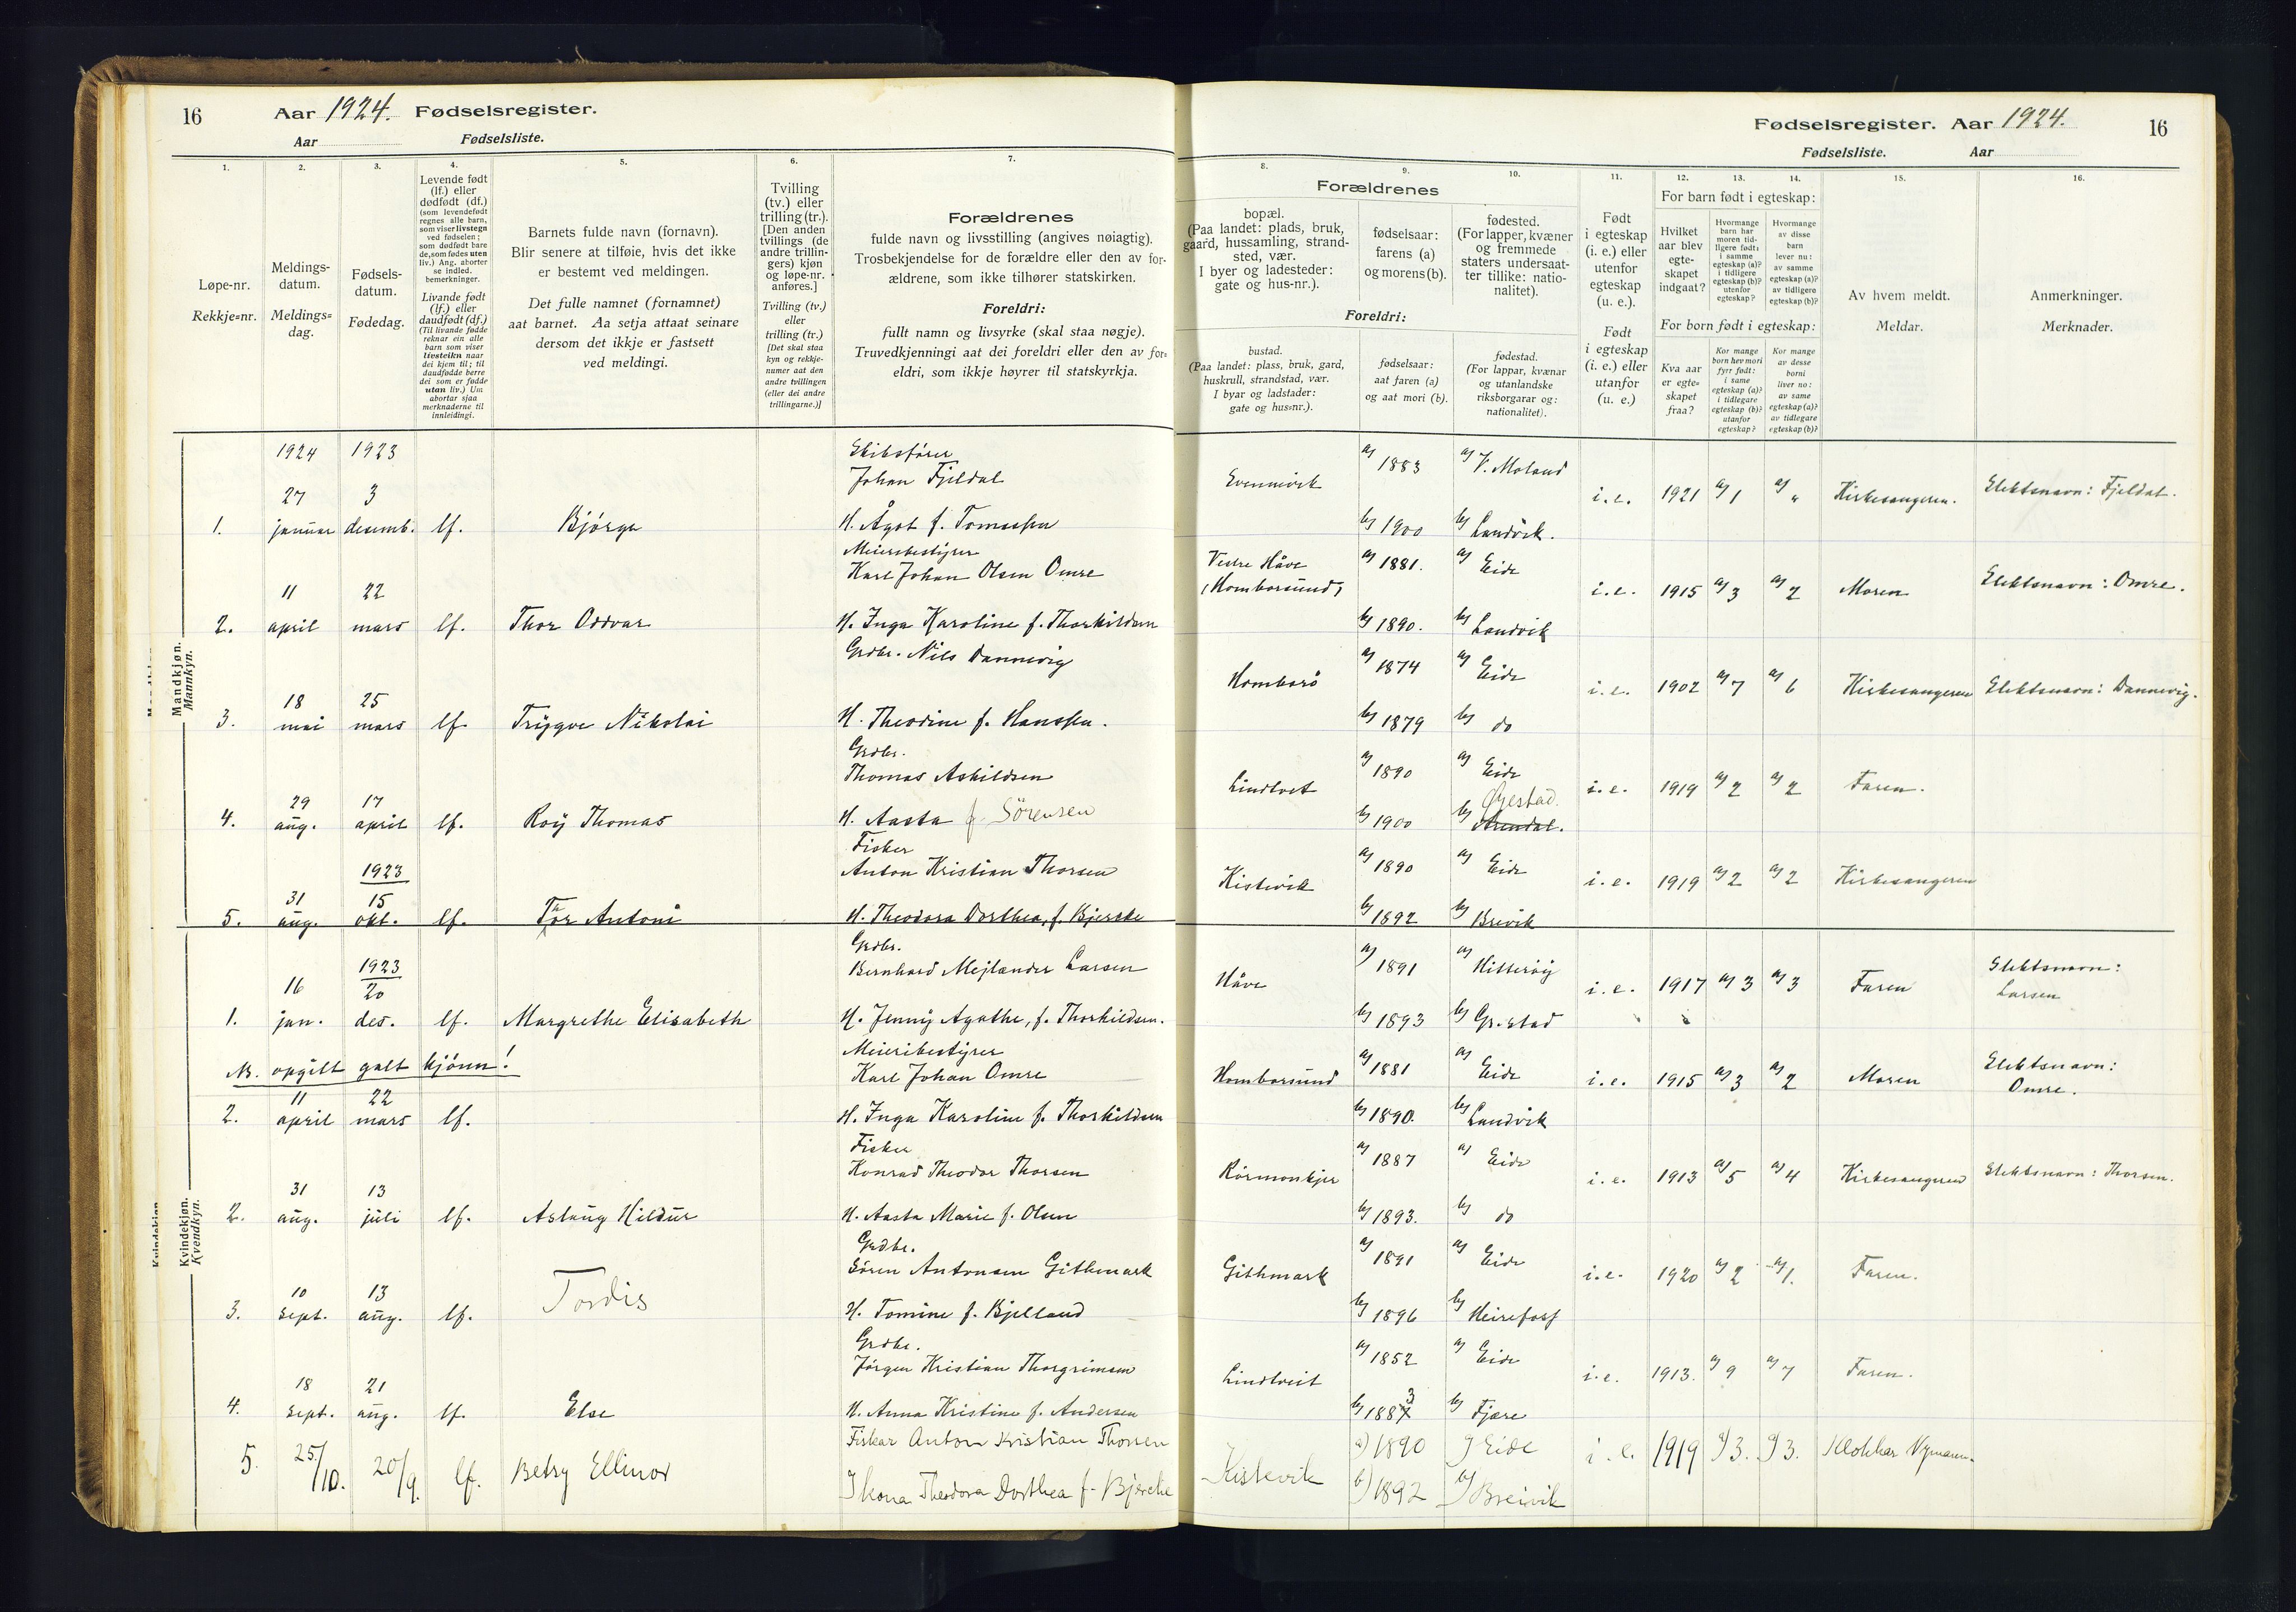 16 Aar 1924. Fødselsregister.
Aar Fødselsliste.
Fødselsregister. Aar 1924. 16
Fødselsliste. Aar
1. 2. 3. 4. 5. 6. 7. 8. 9. 10. 11. 12. 13. 14. 15. 16.
Løpe-nr.
Rekkje=nr.
Meldings-
datum.
Meldings=
dag.
Fødsels-
datum.
Fødedag.
Levende født
(lf.) eller
dødfødt (df.)
(som levendefødt
regnes alle barn,
som viser livstegn
ved fødselen;
som dødfødt bare
de, som fødes uten
liv.) Ang. aborter
se indled.
bemerkninger.
Livande født
(lf.) eller
daudfødt (df.)
(Til livande fødde
reknar ein alle
barn som viser
livsteikn naar
dei kjem til; til
daudfødde berre
dei som er fødde
utan liv.) Um
abortar sjaa
merknaderne til
innleidingi.
Barnets fulde navn (fornavn).
Blir senere at tilføie, hvis det ikke
er bestemt ved meldingen.
Det fulle namnet (fornamnet)
aat barnet. Aa setja attaat seinare
dersom det ikkje er fastsett
ved meldingi.
Tvilling
(tv.) eller
trilling (tr.).
[Den anden
tvillings (de
andre trillin-
gers) kjøn
og løpe-nr.
anføres.]
Tvilling (tv.)
eller
trilling (tr.)
[Det skal staa
kyn og rekkje-
numer aat den
andre tvillingen
(eller dei andre
trillingarne.)]
Forældrenes
fulde navn og livsstilling (angives nøiagtig).
Trosbekjendelse for de forældre eller den av for-
ældrene, som ikke tilhører statskirken.
Foreldri:
fullt namn og livsyrke (skal staa nøgje).
Truvedkjenningi aat dei foreldri eller den av for=
eldri, som ikkje høyrer til statskyrkja.
Forældrenes
bopæl.
(Paa landet: plads, bruk,
gaard, hussamling, strand-
sted, vær.
I byer og ladesteder:
gate og hus-nr.).
fødselsaar:
farens (a)
og morens (b).
fødested.
(For lapper, kvæner
og fremmede
staters undersaat-
ter tillike: natio-
nalitet).
Foreldri:
bustad.
(Paa landet: plass, bruk, gard,
huskrull, strandstad, vær.
I byar og ladstader:
gate og hus=nr.).
fødselsaar:
aat faren (a)
og aat mori (b).
fødestad.
(For lappar, kvænar
og utanlandske
riksborgarar og:
nationalitet).
Født
i egteskap
(i. e.) eller
utenfor
egteskap
(u. e.).
Født
i egteskap
(i. e.) eller
utanfor
(u. e.)
For barn født i egteskap:
Hvilket
aar blev
egte-
skapet
indgaat?
Hvormange
barn har
moren tid-
ligere født:
i samme
egteskap (a)?
i tidligere
egteskap (b)?
utenfor
egteskap?
Hvormange
av disse
barn
lever nu:
av samme
egteskap (a)?
av tidligere
egteskap (b)?
For born født i egteskap:
Kva aar
er egte=
skapet
fraa?
Kor mange
born hev mori
fyrr født:
i same
egteskap (a)?
i tidlegare
egteskap (b)?
utanfor
egteskap?
Kor mange
av desse
borni
liver no:
av same
egteskap (a)?
av tidlegare
egteskap (b)?
Av hvem meldt.
Meldar.
Anmerkninger.
Merknader.
Mandkjøn.
Mannkyn.
1924 1923
Skibsfører
Johan Fjeldal a) 1883 a) V. Moland
27 3
1. januar desemb. lf. Bjørga H. Ågot f. Tomassen b) 1900 b) Landvik.
i.e. 1921 a) 1 a) „ Kirkesangeren. Slektsnavn: Fjeldal.
Meieribestyrer
Karl Johan Olsen Omre Vestre Håve (Homborsund) a) 1881. a) Eide
11 22
2. april mars lf. Thor Oddvar H. Inga Karoline f. Thorkildsen b) 1890. b) Landvik
i.e. 1915 a) 3 a) 2 Moren Slektsnavn: Omre.
Grdbr. Nils Dannevig Homborø a) 1874 a) Eide
18 25
3. mai mars lf. Trygve Nikolai H. Theodine f. Hanssen. b) 1879 b) do
i.e. 1902 a) 7 a) 6 Kirkesangeren Slektsnavn: Dannevig.
Grdbr.
Thomas Askildsen Lindtvet a) 1890 a) Eide
29 17
4. aug. april lf. Roy Thomas H. Aasta f. Sørensen b) 1900 b) Øyestad. Arendal.
i.e. 1919 a) 2 a) 2 Faren.
Fisker
1923 Anton Kristian Thorsen Kistevik a) 1890 a) Eide
31 15
5. aug. okt. lf. Thor Antoni H. Theodora Dorthea, f. Bjerke b) 1892 b) Breivik
i.e. 1919 a) 2 a) 2 Kirkesangeren
Kvindekjøn.
Kvendkyn.
Grdbr.
1923 Bernhard Mejlander Larsen Håve a) 1891 a) Hitterøy
16 20
1. jan. des. lf. Margrethe Elisabeth H. Jenny Agathe, f. Thorkildsen. b) 1893 b) Gr.stad
i.e. 1917 a) 3 a) 3 Faren Slektsnavn:
Larsen
NB. opgilt galt kjønn!
Meieribestyrer
Karl Johan Omre Homborsund a) 1881 a) Eide
11 22
2. april mars lf. H. Inga Karoline f. Thorkildsen b) 1890. b) Landvik
i.e. 1915 a) 3 a) 2 Moren Slektsnavn:
Omre.
Fisker
Konrad Theodor Thorsen a) 1887 a) Eide
31 13
2. aug. juli lf. Aslaug Hildur H. Aasta Marie f. Olsen b) 1893. b) do
i.e. 1913 a) 5 a) 4 Kirkesangeren Slektsnavn: Thorsen.
Grdbr.
Søren Antonsen Githmark Githmark a) 1891 a) Eide
10 13
3. sept. aug. lf. Tordis H. Tomine f. Bjelland b) 1896 b) Heirefoss
i.e. 1920 a) 2 a) 1. Faren.
Grdbr.
Jørgen Kristian Thorgrimsen Lindtveit a) 1852 a) Eide
18 21
4. sept. aug. lf. Else H. Anna Kristine f. Andersen b) 1883 b) Fjære
i.e. 1913. a) 9 a) 7 Faren.
Fiskar Anton Kristian Thorsen Kistevik a) 1890 a) Eide
5. 25/10. 20/9. lf. Betsy Ellinor
Kona Theodora Dorthea f. Bjercke b) 1892 b) Breivik
i. e. 1919 a) 3. a) 3. Klokkar